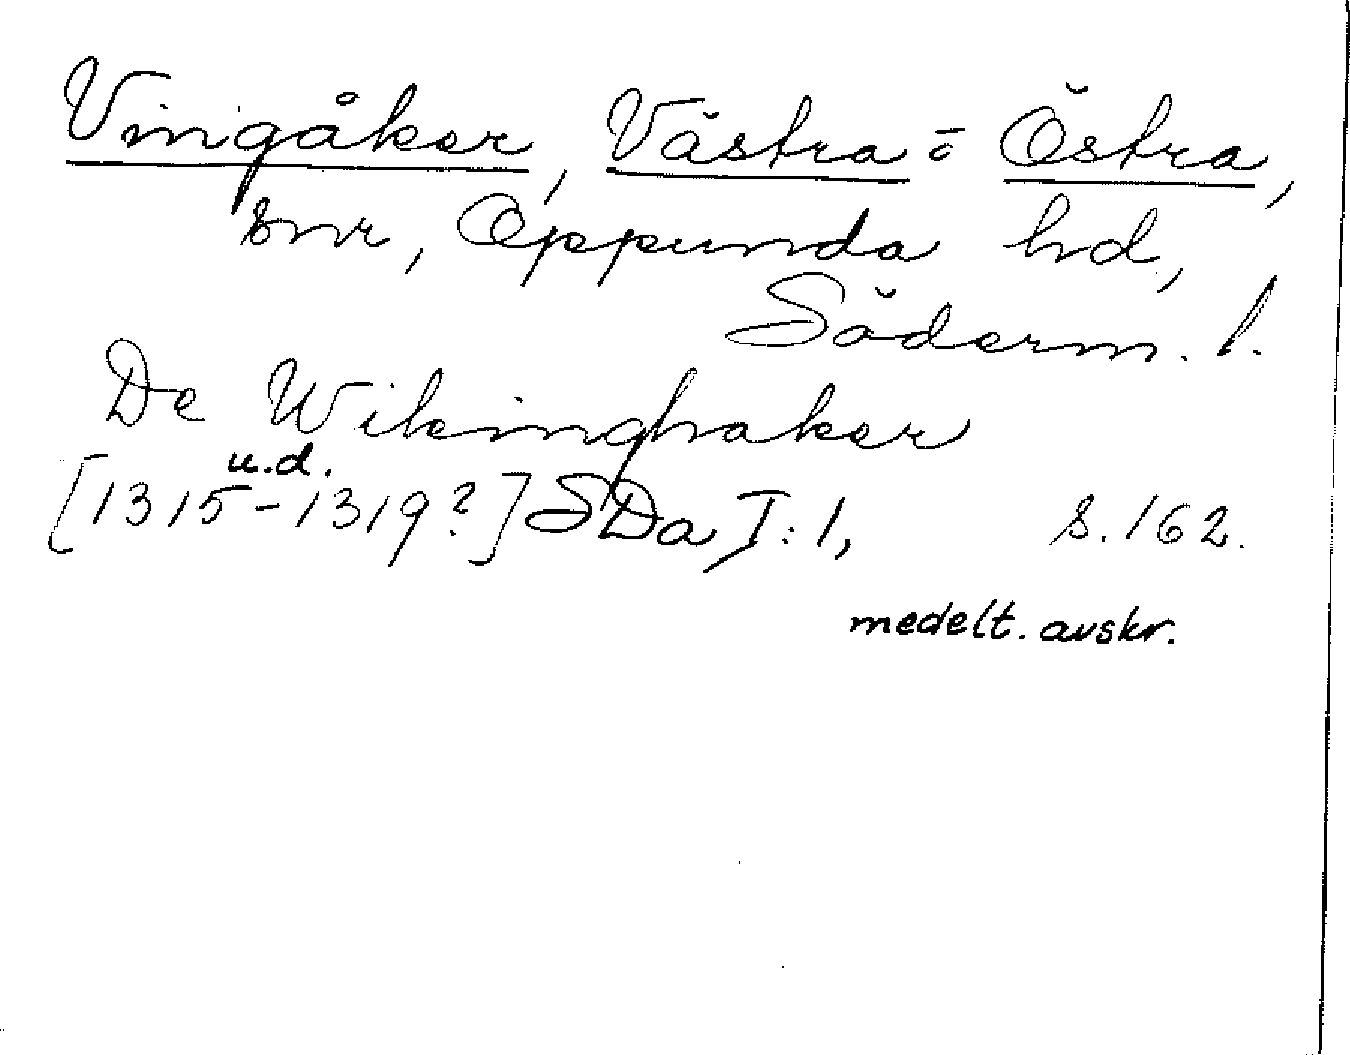 Vingåker, Västra o Östra,
snr, Oppunda hd,
Söderm. l.
De Wikinghaker
u.d.
[1315-1319?] SDa I:1, s. 162.
medelt. avskr.